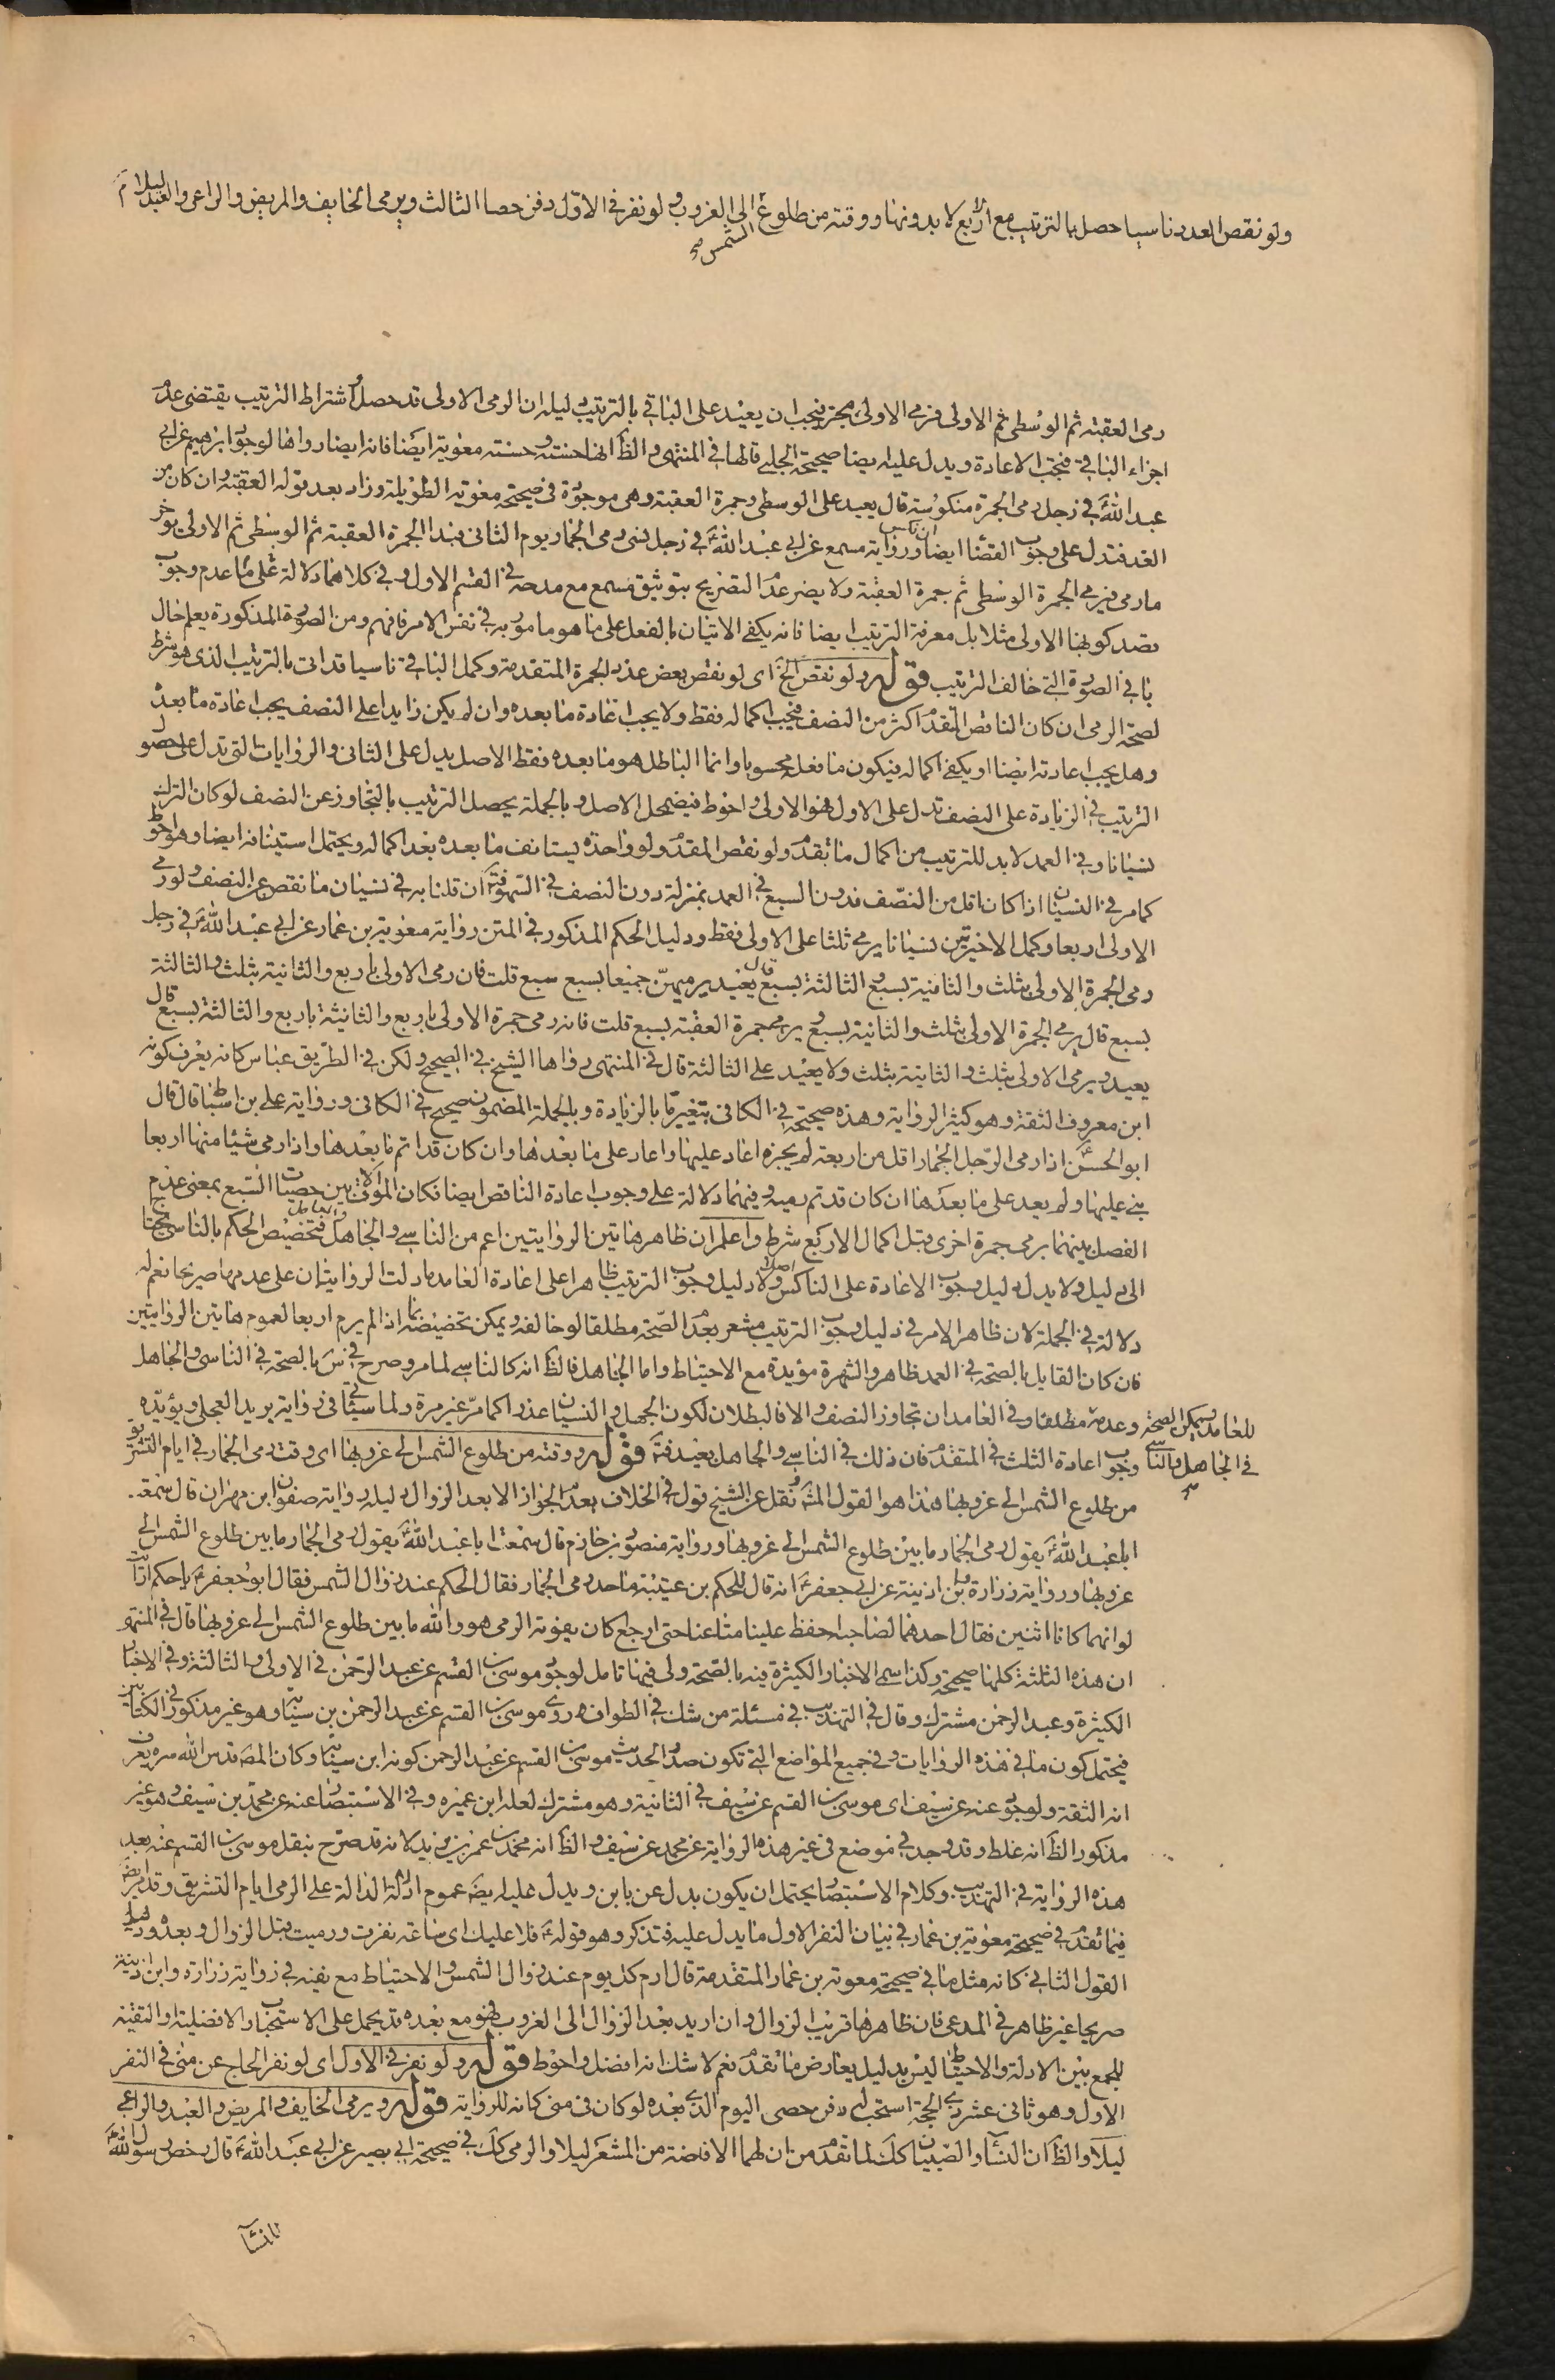 ولو نقص العدد ناسيا حصل بالترتيب مع اربع لا بدونها ووقته من طلوع الى الغروب ولو نفر فى الاول دفن حصا الثالث ويرمى الخايف والمريض والراعى والعبد ليلا م
الشمس صح
رمى العقبة ثم الوسطى ثم الاولى فرمى الاولى مجز فيجب ان يعيد على الباقى بالترتيب دليله ان الرمى الاولى قد حصل واشتراط الترتيب يقتضى عدم
اجزاء الباقى فيجب الاعادة ويدل عليه ايضا صحيحة الحلبى قالها فى المنتهى والظ انها حسنته وحسنة معوية ايضا فانه ايضا رواها لوجود ابرهيم عن ابى
عبد الله ع فى رجل رمى الجمرة منكوسة قال يعيد على الوسطى وجمرة العقبة وهى موجودة فى صحيحة معوية الطويلة وزاد بعد قوله العقبة وان كان من
الغد فتدل على وجوب القضا ايضا ورواية مسمع عن ابى عبد الله ع فى رجل نسى رمى الجمار يوم الثانى فبدا بجمرة العقبة ثم الوسطى ثم الاولى يؤخر
ما رمى فيرمى الجمرة الوسطى ثم جمرة العقبة ولا يضر عدم التصريح بتوثيق مسمع مع مدحه فى القسم الاول وفى كلاهما دلالة على ما عدم وجوب
قصد كونها الاولى مثلا بل معرفة الترتيب ايضا فانه يكفى الاتيان بالفعل على ما هو مامور به فى نفس الامر فافهم ومن الصورة المذكورة يعلم حال
باقى الصورة التى خالف الترتيب قوله ولو نقص الخ اى لو نقص بعض عدد الجمرة المتقدمة وكمل الباقى ناسيا قد اتى بالترتيب الذى هو شرط
لصحة الرمى ان كان الناقص المتقدم اكثر من النصف فيجب اكماله فقط ولا يجب اعادة ما بعده وان لم يكن زايدا على النصف يجب اعادة ما بعده
وهل يجب اعادته ايضا او يكفى اكماله فيكون ما فعل محسوبا وانما الباطل هو ما بعده فقط الاصل يدل على الثانى والروايات التى تدل على حصول
الترتيب فى الزيادة على النصف تدل على الاول فهو الاولى واحوط فيضمحل الاصل وبالجملة يحصل الترتيب بالتجاوز عن النصف لو كان الترك
نسيانا وفى العمد لا بد للترتيب من اكمال ما تقدم ولو نقص المقدم ولو واحدة يستانف ما بعده بعد اكماله ويحتمل استينافه ايضا وهو احوط
كما مر فى النسيان اذا كان اقل من النصف فدون السبع فى العمد بمنزلة دون النصف فى السهو فتم ان قلنا به فى نسيان ما نقص عن النصف ولو رمى
الاولى اربعا وكمل الاخيرتين نسيانا يرمى ثلثا على الاولى فقط ودليل الحكم المذكور فى المتن رواية معوية بن عمار عن ابى عبد الله ع فى رجل
رمى الجمرة الاولى بثلث والثانية بسبع والثالثة بسبع قال يعيد يرميهن جميعا بسبع سبع قلت فان رمى الاولى باربع والثانية بثلث والثالثة
بسبع قال يرمى الجمرة الاولى بثلث والثانية بسبع ويرمى جمرة العقبة بسبع قلت فانه رمى جمرة الاولى باربع والثانية باربع والثالثة بسبع قال
يعيد ويرمى الاولى بثلث والثانية بثلث ولا يعيد على الثالثة قال فى المنتهى رواها الشيخ فى الصحيح ولكن فى الطريق عباس كانه يعرف كونه
ابن معروف الثقة وهو كثير الرواية وهذه صحيحة فى الكافى بتغيير ما بالزيادة وبالجملة المضمون صحيح فى الكافى ورواية على بن اسباط قال قال
ابو الحسن ع اذا رمى الرجل الجمار اقل من اربعة لم يجزه اعاد عليها واعاد على ما بعدها وان كان قد اتم ما بعدها واذا رمى شيئا منها اربعا
بنى عليها ولم يعد على ما بعدها ان كان قد تم رميه وفيهما دلالة على وجوب اعادة الناقص ايضا فكان الموالاة بين حصيات السبع بمعنى عدم
الفصل بينهما برمى جمرة اخرى قبل اكمال الاربع شرط واعلم ان ظاهر هاتين الروايتين اعم من الناسى والجاهل والعامد فتخصيص الحكم بالناسى يحتاج
الى دليل ولا يدل دليل وجوب الاعادة على الناكس اصلا ولا دليل وجوب الترتيب ظاهرا على اعادة العامد ما دلت الروايتان على عدمها صريحا نعم له
دلالة فى الجملة لان ظاهر الامر فى دليل وجوب الترتيب مشعر بعدم الصحة مطلقا لو خالف ويمكن تخصيصها بما اذا لم يرم اربعا لعموم هاتين الروايتين
فان كان القايل بالصحة فى العمد ظاهر والشهرة مؤيدة مع الاحتياط واما الجاهل فالظ انه كالناسى لما مر وصرح فى س بالصحة فى الناسى والجاهل
للعامد ويمكن الصحة وعدمها مطلقا وفى العامد ان تجاوز النصف والا فالبطلان لكون الجهل والنسيان عذرا كما مر غير مرة ولما سياتى فى رواية بريد العجلى ويؤيده
فى الجاهل والناسى وجوب اعادة الثلث فى المتقدم فان ذلك فى الناسى والجاهل بعيد فتم قوله ووقته من طلوع الشمس الى غروبها اى وقت رمى الجمار فى ايام التشريق
من طلوع الشمس الى غروبها هذا هو القول المش ونقل عن الشيخ قول فى الخلاف بعدم الجواز الا بعد الزوال دليله رواية صفوان ابن مهران قال سمعت
ابا عبد الله ع يقول رمى الجمار ما بين طلوع الشمس الى غروبها ورواية منصور بن حازم قال سمعت ابا عبد الله ع يقول رمى الجمار ما بين طلوع الشمس الى
غروبها ورواية زرارة وابن اذينة عن ابى جعفر ع انه قال للحكم بن عتيبة ما حد رمى الجمار فقال الحكم عند زوال الشمس فقال ابو جعفر ع يا حكم ارايت
لو انهما كانا اثنين فقال احدهما لصاحبه احفظ علينا متاعنا حتى ارجع اكان يفوته الرمى هو والله ما بين طلوع الشمس الى غروبها قال فى المنتهى
ان هذه الثلثة كلها صحيحة وكذا سمى الاخبار الكثيرة فيه بالصحة ولى فيها تامل لوجود موسى بن القسم عن عبد الرحمن فى الاولى والثالثة وفى الاخبار
الكثيرة وعبد الرحمن مشترك وقال فى التهذيب فى مسئلة من شك فى الطواف روى موسى بن القسم عن عبد الرحمن بن سيابة وهو غير مذكور فى الكتابين
فيحتمل كون ما فى هذه الروايات وفى جميع المواضع التى تكون صدر الحديث موسى بن القسم عن عبد الرحمن كونه ابن سيابة وكان المص قدس الله سره يعرف
انه الثقة ولوجود عنه عن سيف اى موسى بن القسم عن سيف فى الثانية وهو مشترك لعله ابن عميره وفى الاستبصار عنه عن محمد بن سيف وهو غير
مذكور الظ انه غلط وقد وجد فى موضع فى غير هذه الرواية عن محمد عن سيف والظ انه محمد بن عمر بن يزيد لانه قد صرح بنقل موسى بن القسم عنه بعد
هذه الرواية فى التهذيب وكلام الاستبصار يحتمل ان يكون بدل عن يا بن ويدل عليه ايضا عموم ادلة الدالة على الرمى ايام التشريق وقد مر ايضا
فيما تقدم فى صحيحة معوية بن عمار فى بيان النفر الاول ما يدل عليه فتذكر وهو قوله ع فلا عليك اى ساعة نفرت ورميت قبل الزوال وبعده ودليل
القول الثانى كانه مثل ما فى صحيحة معوية بن عمار المتقدمة قال ارم كل يوم عند زوال الشمس والاحتياط مع نفيه فى رواية زرارة وابن اذينة
صريحا غير ظاهر فى المدعى فان ظاهرها قريب الزوال وان اريد بعد الزوال الى الغروب فهو مع بعده قد يحمل على الاستحباب والافضلية او التقية
للجمع بين الادلة والاحتياط ليس بدليل يعارض ما تقدم نعم لا شك انه افضل واحوط قوله ولو نفر فى الاول اى لو نفر الحاج عن منى فى النفر
الاول وهو ثانى عشر ذى الحجة استحب له دفن حصى اليوم الذى بعده لو كان فى منى كانه للرواية قوله ويرمى الخايف والمريض والعبد والراعى
ليلا والظ ان النسا والصبيان كك لما تقدم من ان لهما الافاضة من المشعر ليلا والرمى كك فى صحيحة ابى بصير عن ابى عبد الله ع قال رخص رسول الله ص
للنسآ